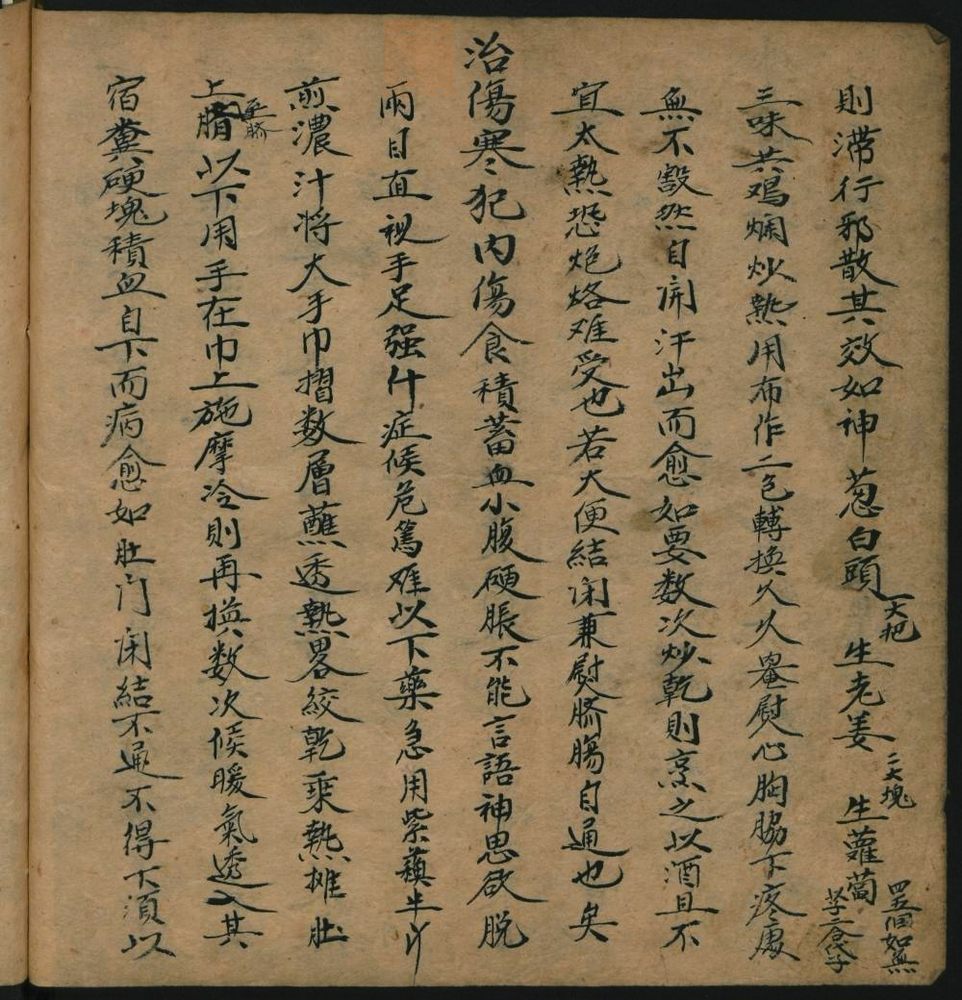 則滞行邪散其效如神 葱白頭一大把 生老姜二大塊 生蘿蔔四五個如無
三味共搗爛炒熱用布作二包轉換久久熨心胸脇下疼處
無不豁然自開汗出而愈如要数次炒乾則烹之以酒且不
宜太熱恐炮烙难受也若大便結闭兼熨脐腸自通也矣
治傷寒犯内傷食積蓄血小腹硬脹不能言語神思欲脱
兩目直视手足强什症候危篤难以下藥急用紫蘇半斤
煎濃汁将大手巾摺数層蘸透熱畧絞乾乘熱摊肚
上以下用手在巾上施摩冷則再换数次候暖氣透入其
宿糞硬塊積血自下而病愈如肚门闭結不通不得下須以